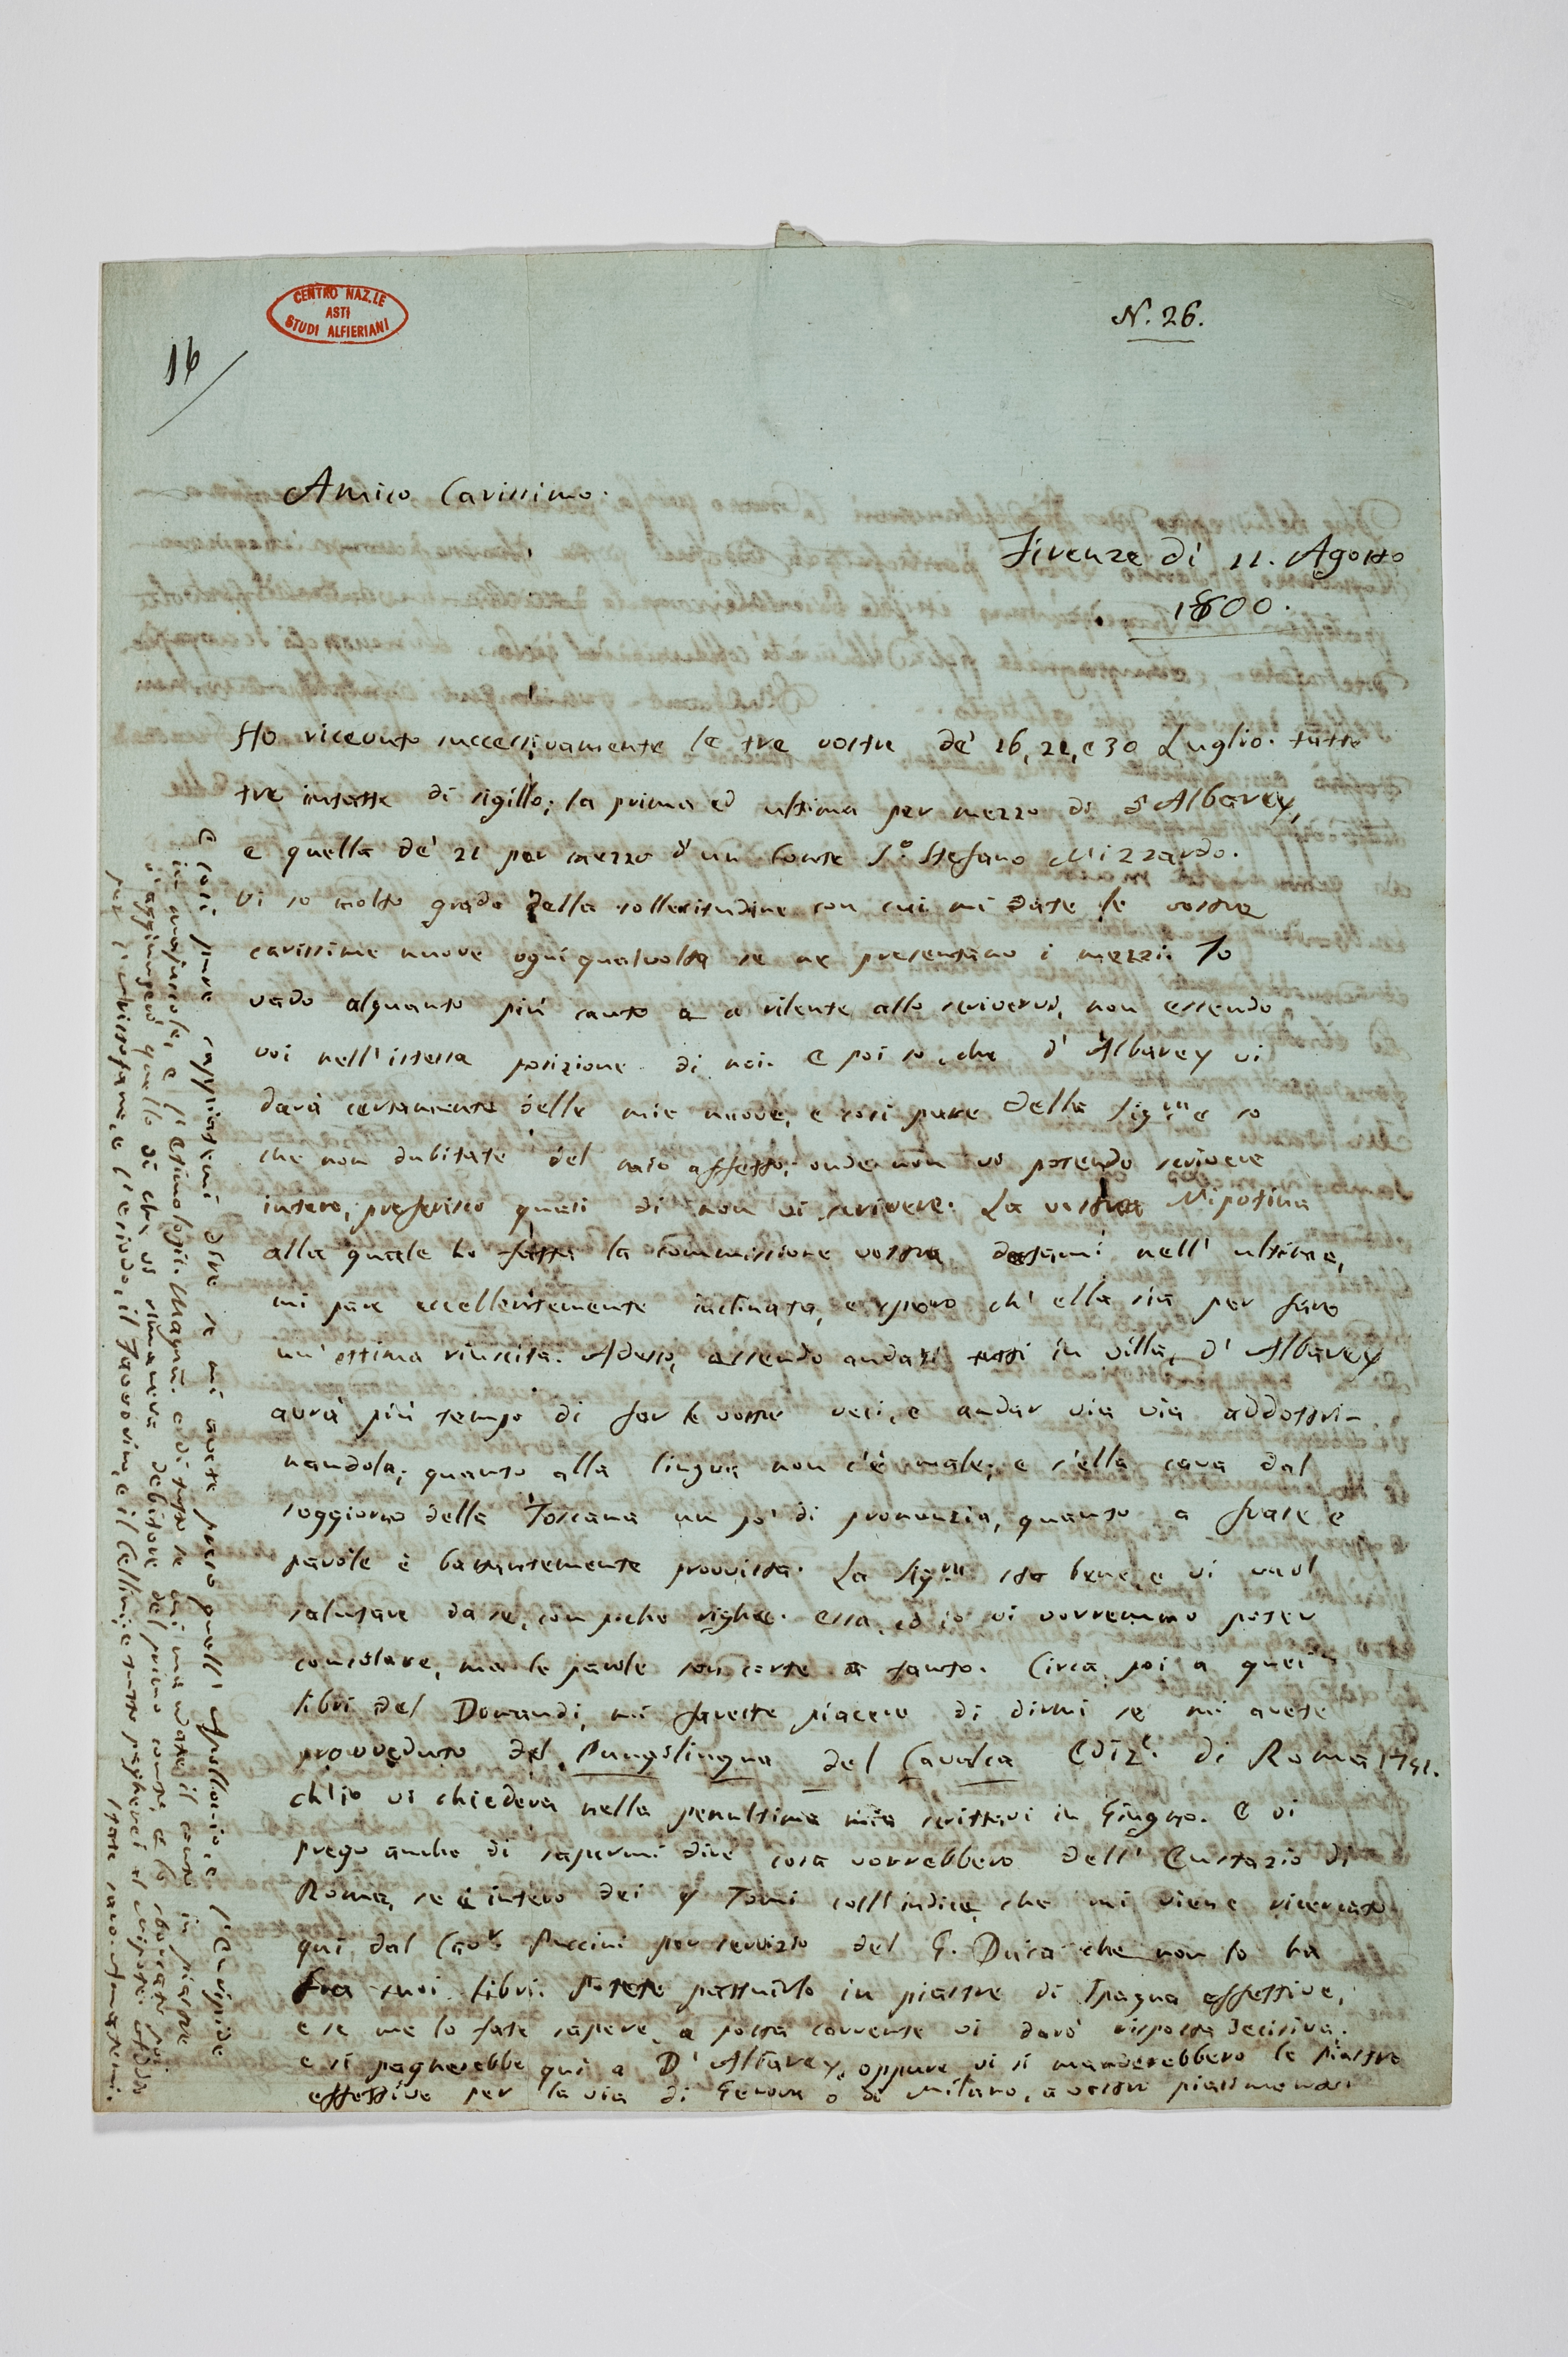 CENTRO NAZ.LE
ASTI
STUDI ALFIERIANI
N. 26.
16
Amico Carissimo.
Firenze dì 11. Agosto
1800.
Ho ricevuto successivamente le tre vostre de' 16, 21, e 30 Luglio. tutte
tre intatte di sigillo; la prima ed ultima per mezzo di d'Albarey,
e quella de' 21 per mezzo d'un Conte S.º Stefano Mizzardo.
Vi so molto grado della sollecitudine con cui mi date le vostre
carissime nuove ogniqualvolta se ne presentano i mezzi. Io
vado alquanto più cauto e a rilente allo scrivervi, non essendo
voi nell'istessa posizione di noi. E poi so che d'Albarey vi
darà certamente delle mie nuove, e così pure della Sig.ra e so
che non dubitate del mio affetto; onde non vi potendo scrivere
intero, preferisco quasi di non vi scrivere. La vostra Nipotina
alla quale ho fatta la commissione vostra datami nell'ultima,
mi pare eccellentemente inclinata, e spero ch'ella sia per fare
un'ottima riuscita. Adesso, essendo andati tutti in villa, d'Albarey
avrà più tempo di far le vostre veci, e andar via via addottri-
nandola; quanto alla lingua non c'è male; e s'ella cava dal
soggiorno della Toscana un po' di pronunzia, quanto a frasi e
parole è bastantemente provvista. La Sig.ra sta bene, e vi vuol
salutare da se, con poche righe. essa, ed io vi vorremmo poter
consolare, ma le parole son corte a tanto. Circa poi a quei
libri del Domandi, mi fareste piacere di dirmi se mi avete
provveduto del Pungilingua del Cavalca Ediz.e di Roma 1751.
ch'io vi chiedeva nella penultima mia scrittavi in Giugno. E vi
prego anche di sapermi dire cosa vorrebbero dell'Eustazio di
Roma, se è intero dei 4 Tomi coll'indice, che mi viene ricercato
qui dal Cav.r Puccini per servizio del G. Duca che non lo ha
fra suoi libri. Potete pattuirlo in piastre di Spagna effettive,
e se me lo fate sapere, a posta corrente vi darò risposta decisiva.
e si pagherebbe qui a D'Albarey, oppure vi si manderebbero le piastre
effettive per la via di Genova o di Milano, a vostro piacimento.
E così pure sappiatemi dire se mi avete preso quell'Apollonio, e l'Euripide
in majuscole, e l'Etimologic. Magn. e di tutto se mi mandate il conto in piastre
v'aggiungerò quello di che vi rimaneva debitore del primo conto, e lo
per l'Aristofane, e l'Esiodo, il Favorino, e il Cellini; e tutto pagherei al Nipote.
State sano. Amatemi.